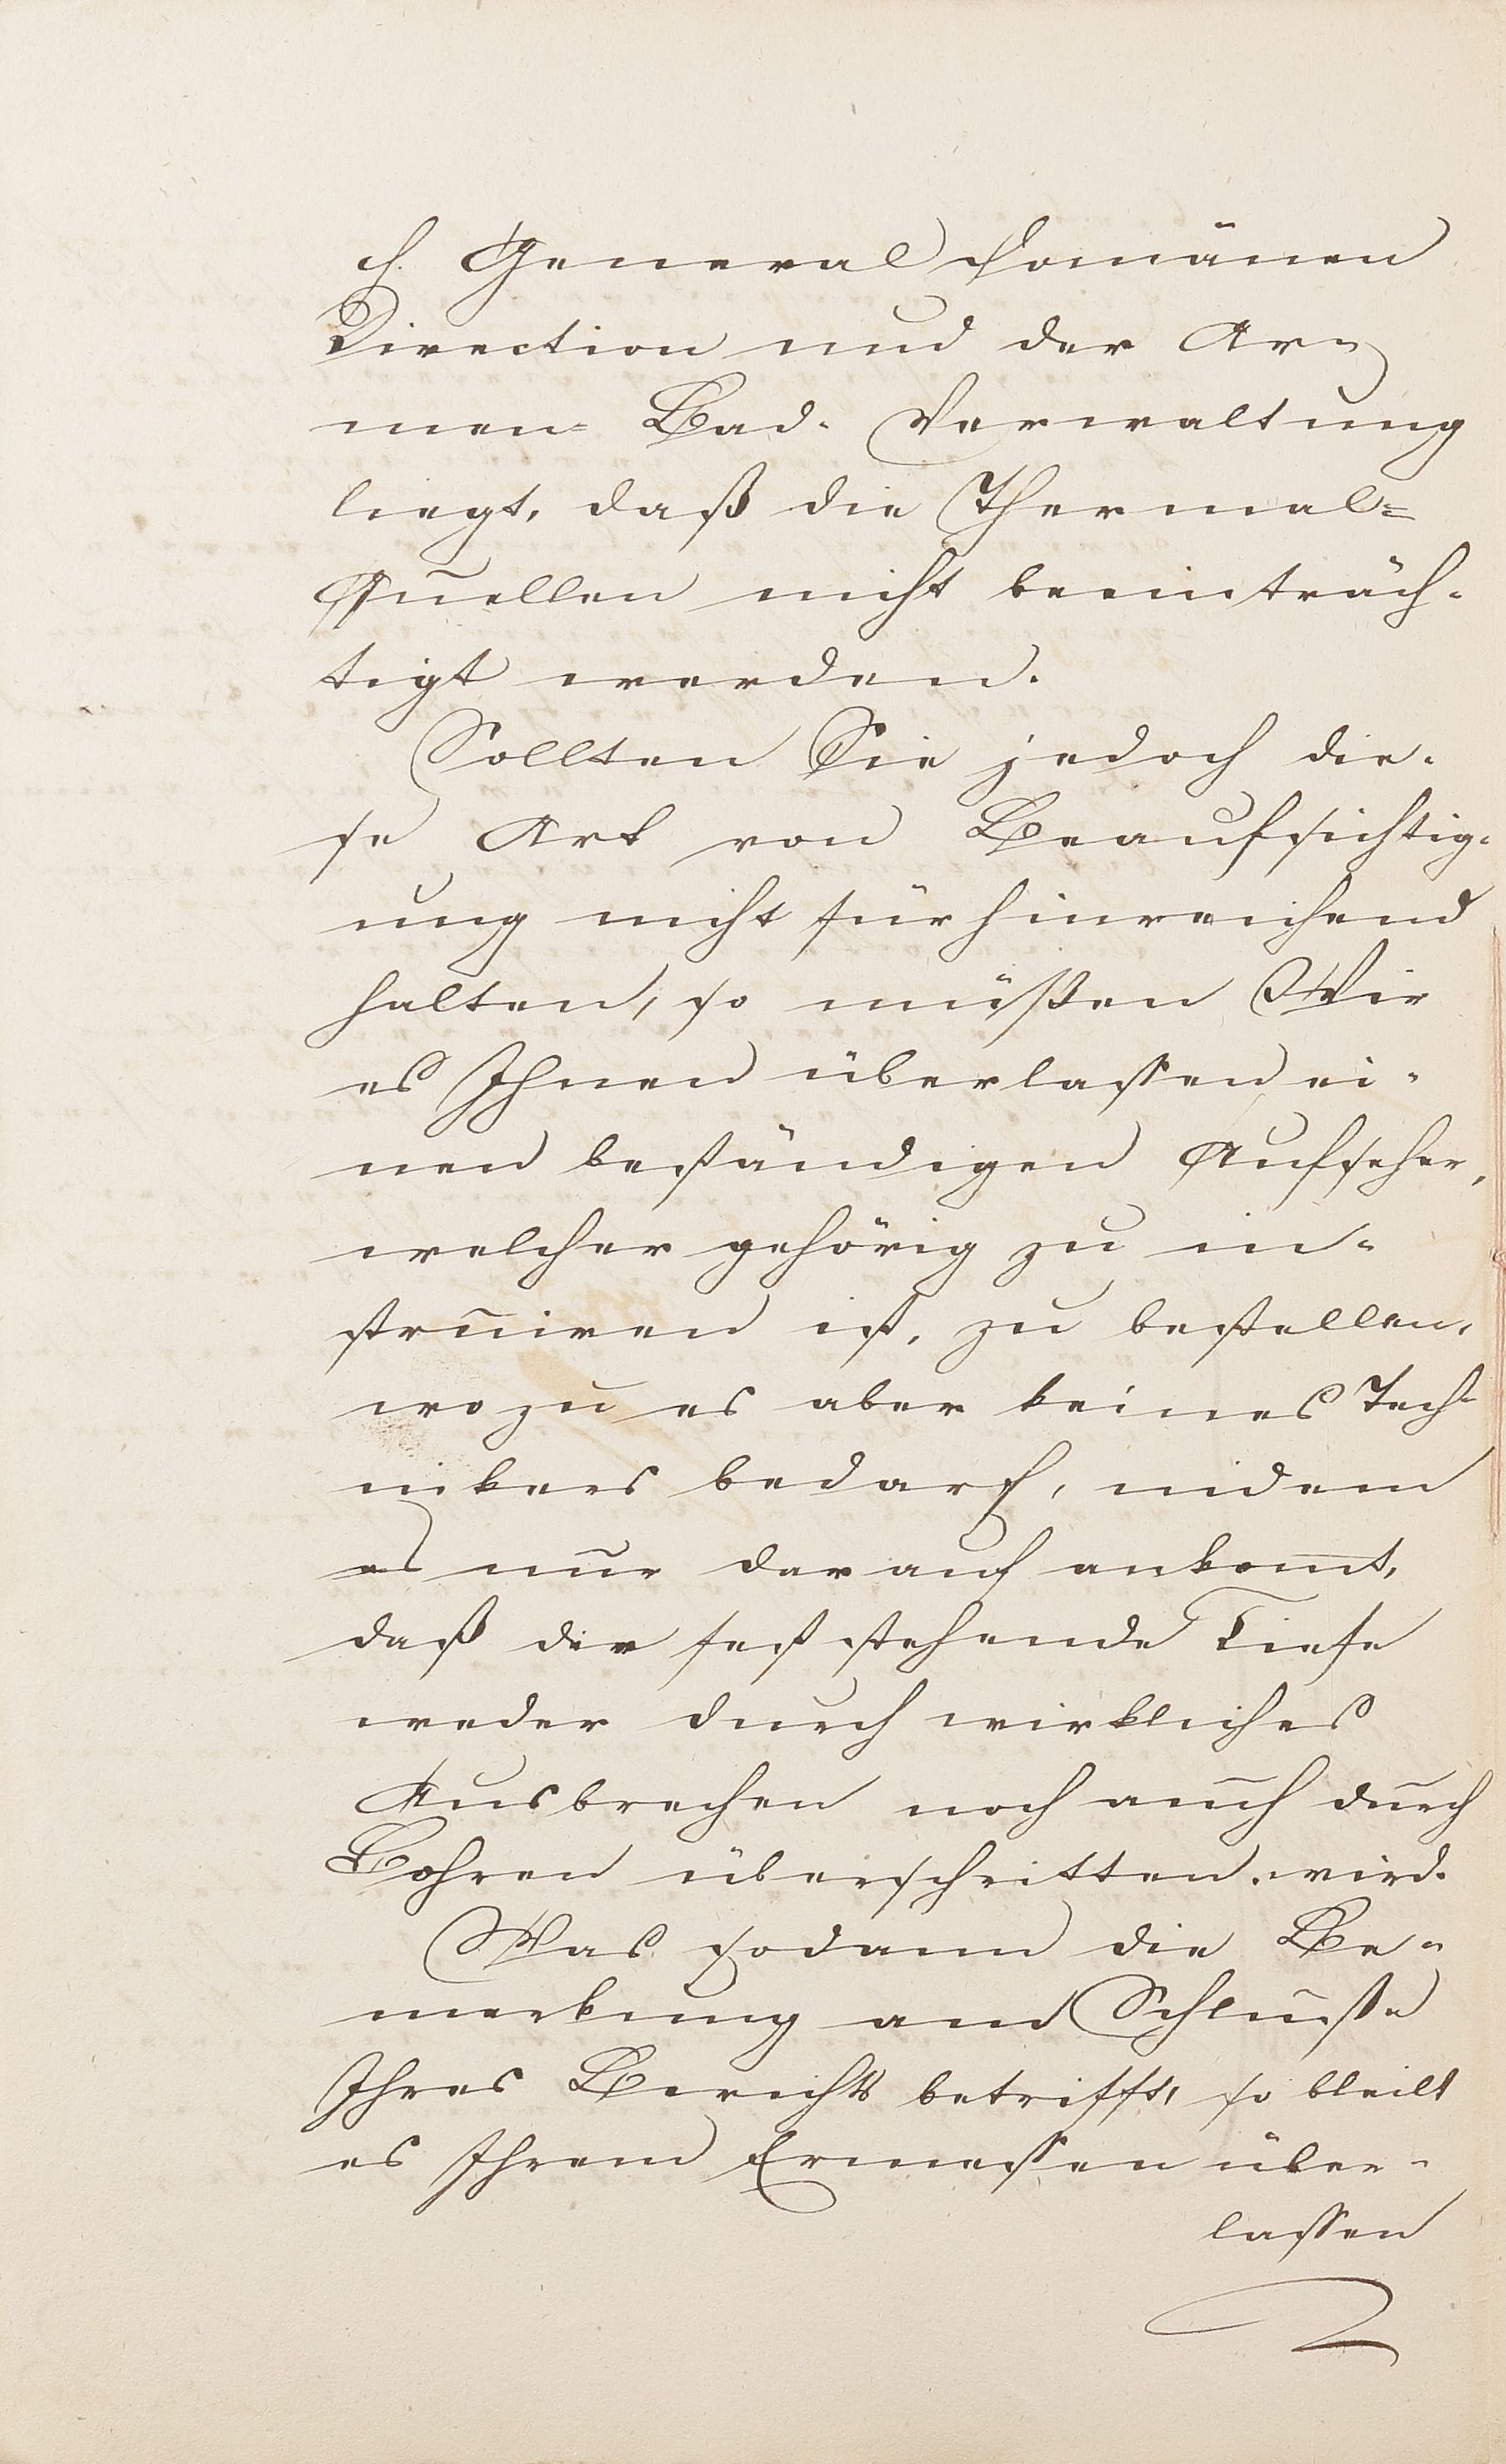 H. General Domänen
Direction und der Ar=
men= Bad. Verwaltung
liegt, daß die Thermal=
Quellen nicht beeinträch-
tigt werden.
Sollten Sie jedoch die-
se Art von Beaufsichtig-
ung nicht für hinreichend
halten, so müßen Wir
es Ihnen überlassen ei-
nen beständigen Aufseher,
welcher gehörig zu in-
struiren ist, zu bestellen,
wozu es aber keines Tech-
nikers bedarf, indem
es nur darauf ankomt,
daß die feststehende Tiefe
weder durch wirkliches
Ausbrechen noch auch durch
Bohren überschritten wird.
Was sodann die Be-
merkung am Schluße
Ihres Berichts betrifft, so bleibt
es Ihrem Ermessen über-
lassen